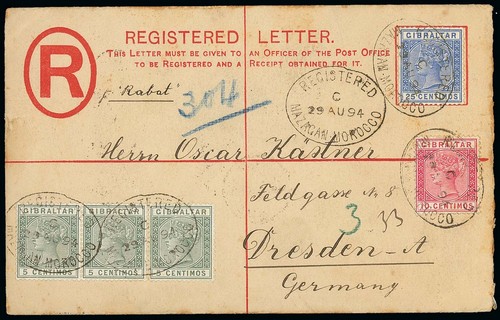 REGISTERED LETTER.
THIS LETTER MUST BE GIVEN TO AN OFFICER OF THE POST OFFICE
TO BE REGISTERED AND A RECEIPT OBTAINED FOR IT.
R
GIBRALTAR
25 CENTIMOS
pr "Rabat"
304
REGISTERED
C
29 AU 94
MAZAGAN-MOROCCO
Herrn Oscar Kästner
Feldgasse No 8
GIBRALTAR
10 CENTIMOS
3 33
Dresden-A
Germany
GIBRALTAR GIBRALTAR GIBRALTAR
5 CENTIMOS 5 CENTIMOS 5 CENTIMOS
REGISTERED
C
29 AU 94